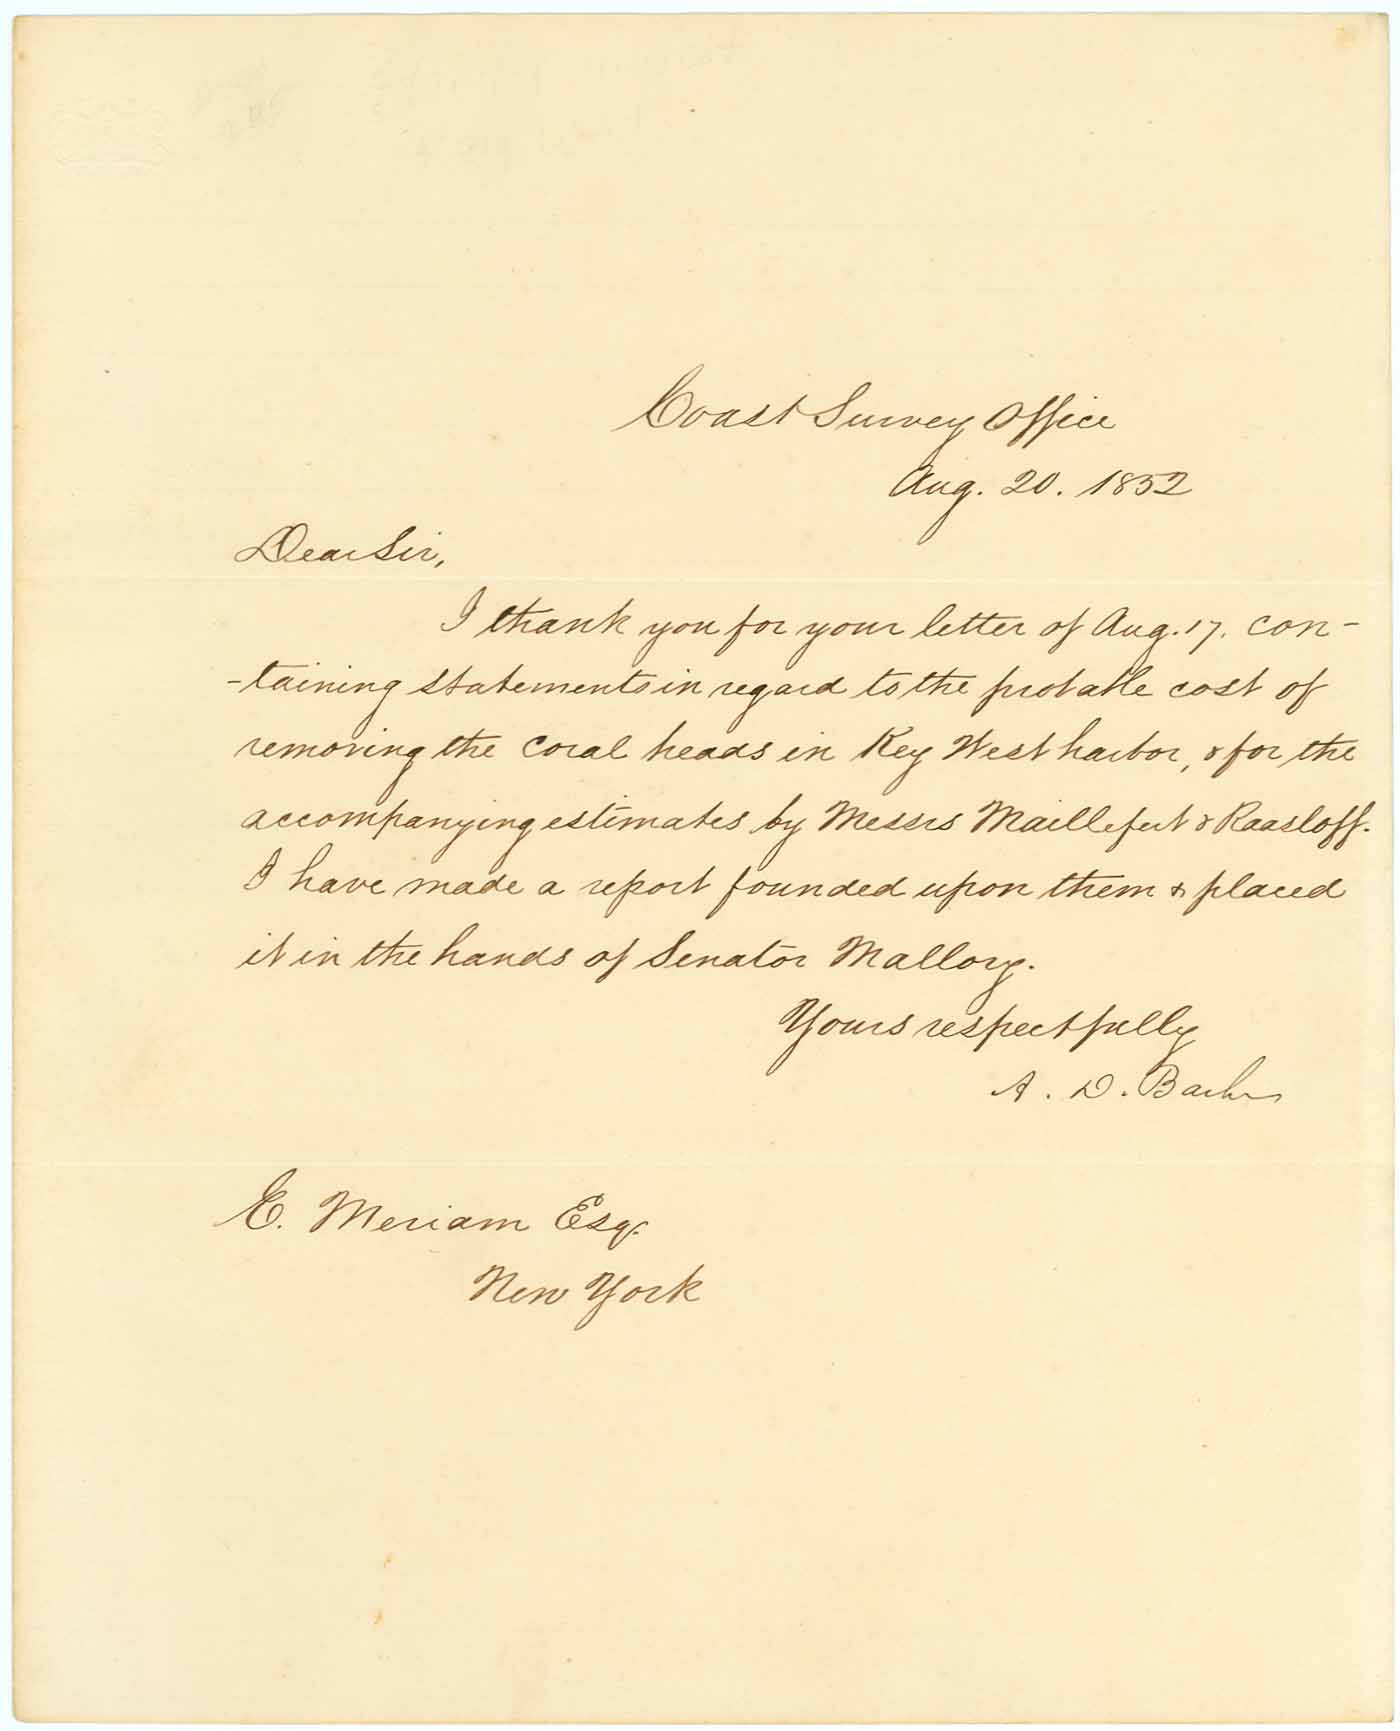 Coast Survey Office
Aug. 20. 1852
Dear Sir,
I thank you for your letter of Aug. 17. con-
-taining statements in regard to the probable cost of
removing the coral heads in Key West harbor, & for the
accompanying estimates by Messrs Maillefert & Raasloff.
I have made a report founded upon them & placed
it in the hands of Senator Mallory.
Yours respectfully
A. D. Bache
E. Meriam Esq.
New York